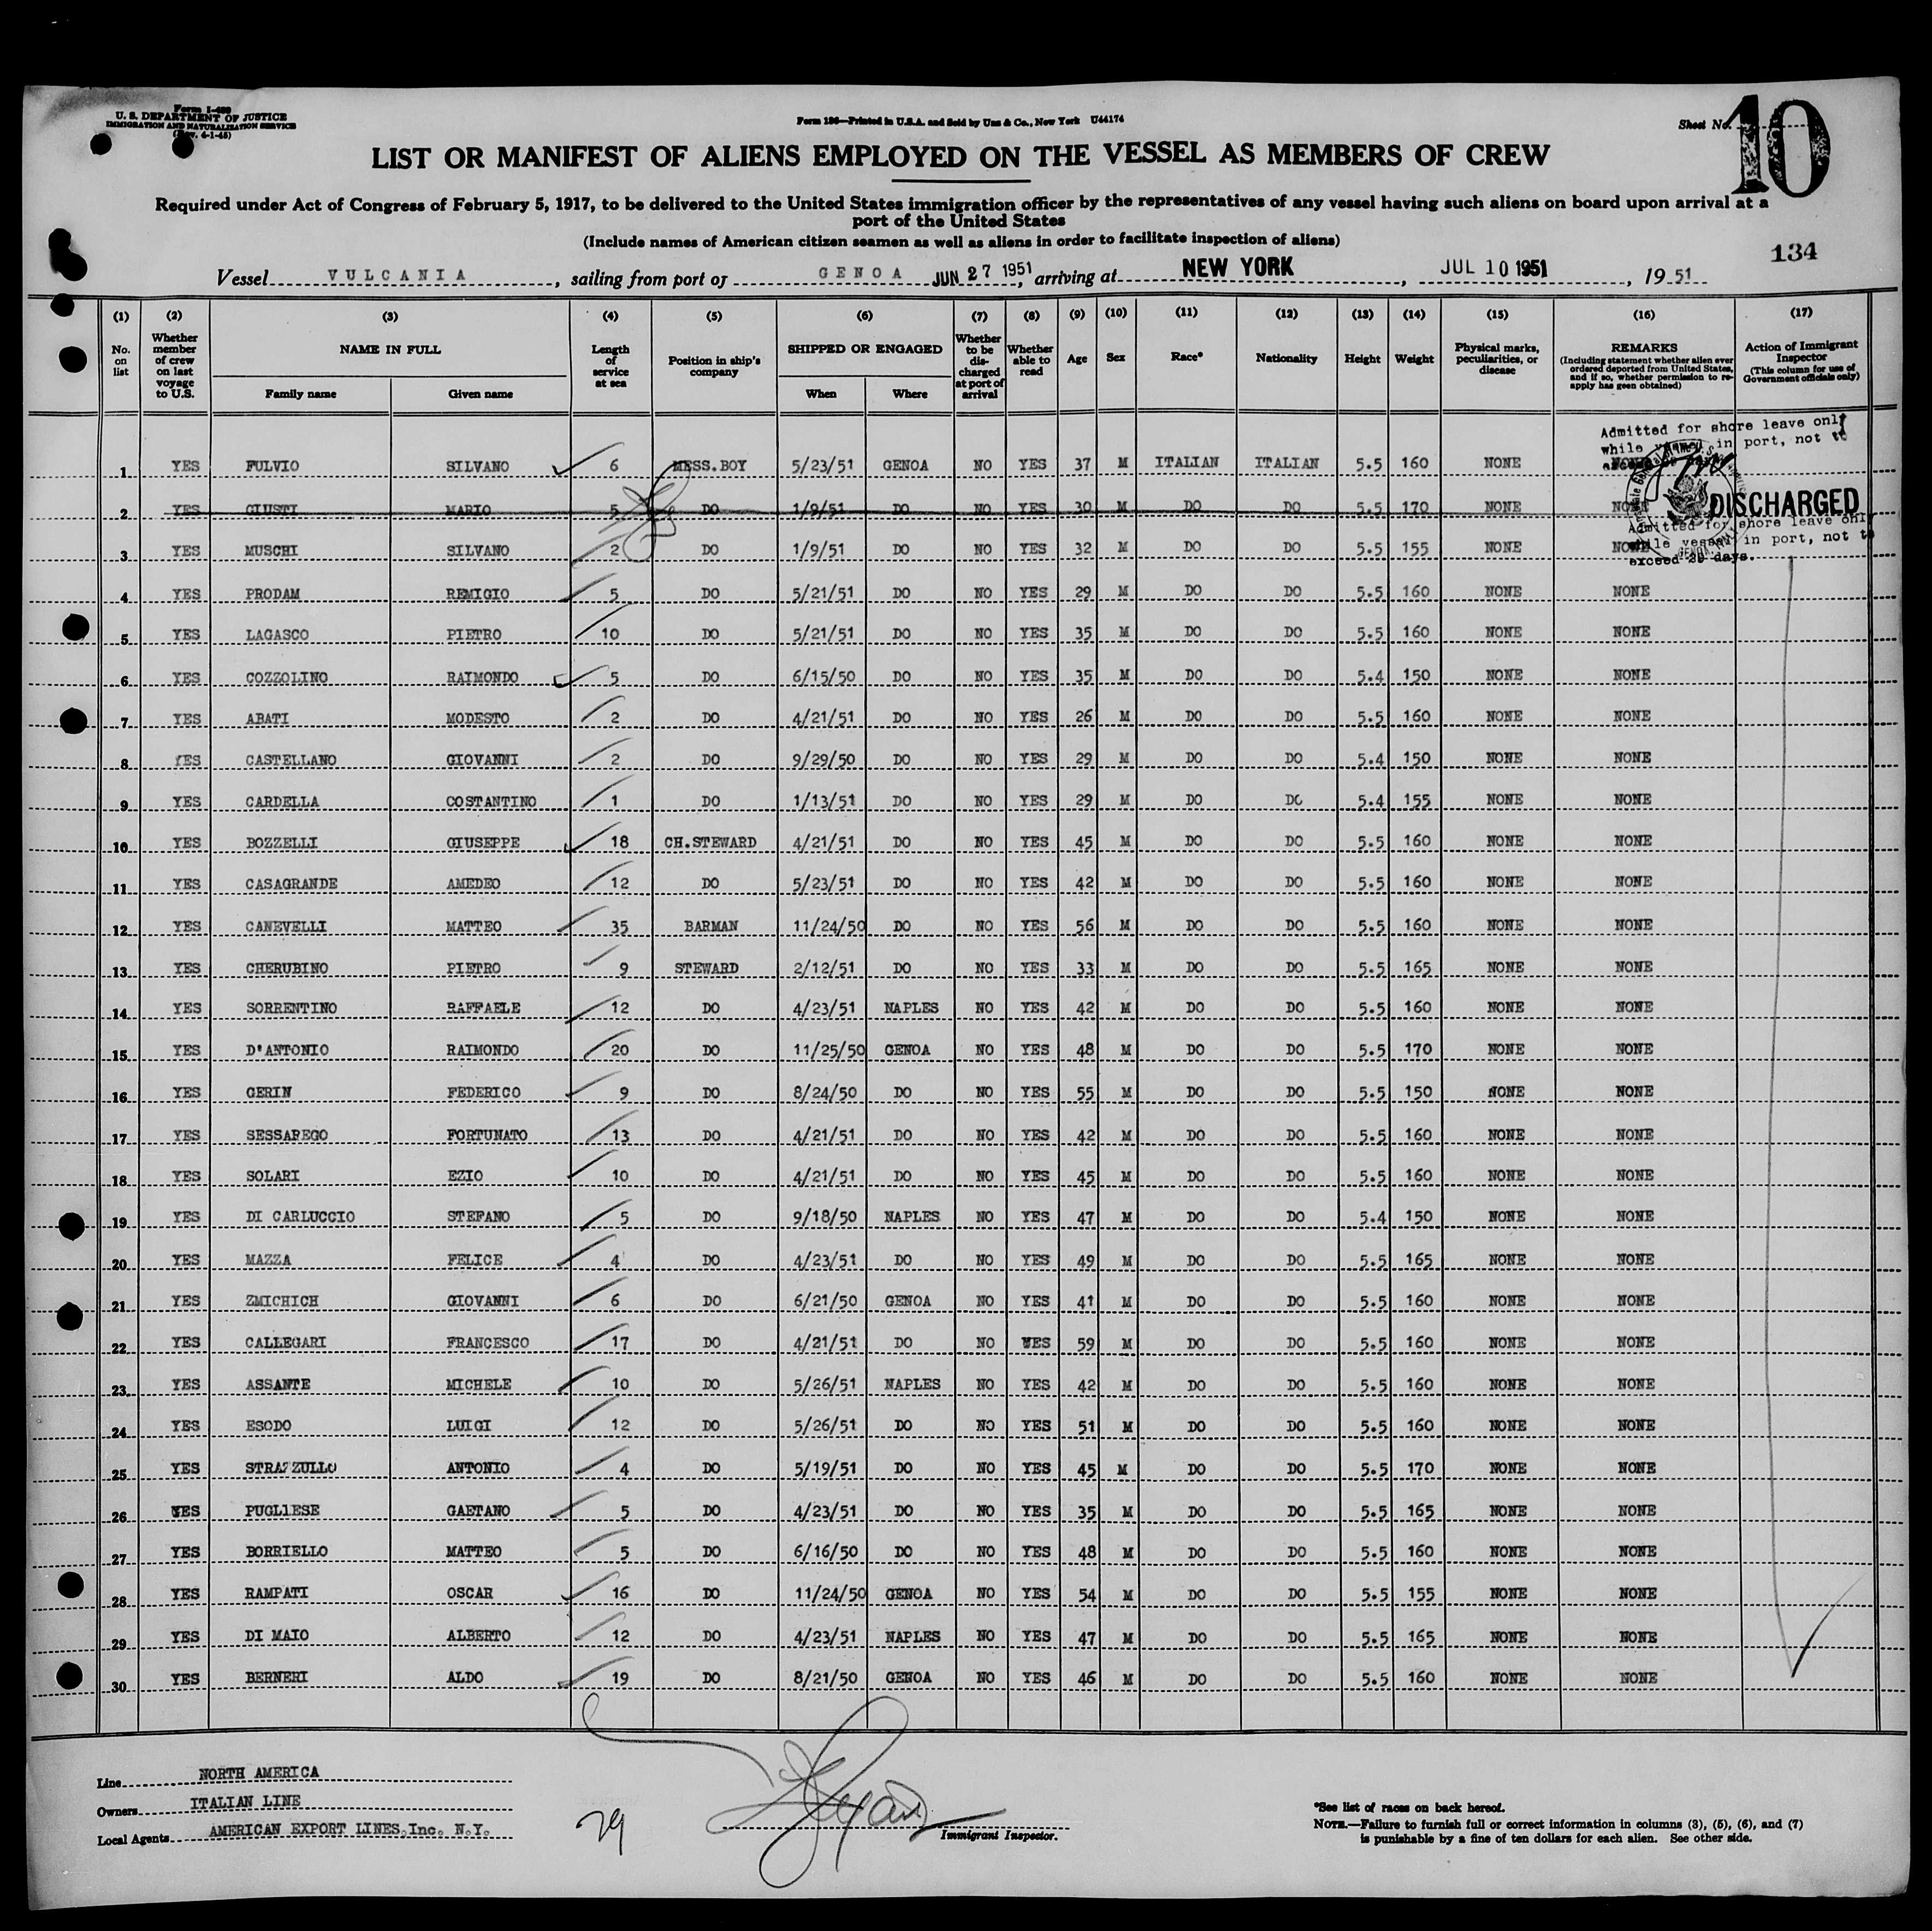 Form I-489
U. S. DEPARTMENT OF JUSTICE
IMMIGRATION AND NATURALIZATION SERVICE
(Rev. 4-1-45)
Form 186—Printed in U.S.A. and Sold by Unz & Co., New York U44174
Sheet No. 10
LIST OR MANIFEST OF ALIENS EMPLOYED ON THE VESSEL AS MEMBERS OF CREW
Required under Act of Congress of February 5, 1917, to be delivered to the United States immigration officer by the representatives of any vessel having such aliens on board upon arrival at a
port of the United States
(Include names of American citizen seamen as well as aliens in order to facilitate inspection of aliens)
134
Vessel VULCANIA, sailing from port of GENOA JUN 27 1951, arriving at NEW YORK, JUL 10 1951, 19 51
(1) (2) (3) (4) (5) (6) (7) (8) (9) (10) (11) (12) (13) (14) (15) (16) (17)
No. on list
Whether member of crew on last voyage to U.S.
NAME IN FULL
Family name Given name
Length of service at sea
Position in ship's company
SHIPPED OR ENGAGED
When Where
Whether to be discharged at port of arrival
Whether able to read
Age
Sex
Race*
Nationality
Height
Weight
Physical marks, peculiarities, or disease
REMARKS
(Including statement whether alien ever ordered deported from United States, and if so, whether permission to re-apply has geen obtained)
Action of Immigrant Inspector
(This column for use of Government officials only)
Admitted for shore leave only
while vessel in port, not to
1 YES FULVIO SILVANO 6 MESS.BOY 5/23/51 GENOA NO YES 37 M ITALIAN ITALIAN 5.5 160 NONE NONE
2 YES GIUSTI MARIO 5 DO 1/9/51 DO NO YES 30 M DO DO 5.5 170 NONE NONE DISCHARGED
Admitted for shore leave only
while vessel in port, not to
exceed 29 days.
3 YES MUSCHI SILVANO 2 DO 1/9/51 DO NO YES 32 M DO DO 5.5 155 NONE NONE
4 YES PRODAM REMIGIO 5 DO 5/21/51 DO NO YES 29 M DO DO 5.5 160 NONE NONE
5 YES LAGASCO PIETRO 10 DO 5/21/51 DO NO YES 35 M DO DO 5.5 160 NONE NONE
6 YES COZZOLINO RAIMONDO 5 DO 6/15/50 DO NO YES 35 M DO DO 5.4 150 NONE NONE
7 YES ABATI MODESTO 2 DO 4/21/51 DO NO YES 26 M DO DO 5.5 160 NONE NONE
8 YES CASTELLANO GIOVANNI 2 DO 9/29/50 DO NO YES 29 M DO DO 5.4 150 NONE NONE
9 YES CARDELLA COSTANTINO 1 DO 1/13/51 DO NO YES 29 M DO DO 5.4 155 NONE NONE
10 YES BOZZELLI GIUSEPPE 18 CH.STEWARD 4/21/51 DO NO YES 45 M DO DO 5.5 160 NONE NONE
11 YES CASAGRANDE AMEDEO 12 DO 5/23/51 DO NO YES 42 M DO DO 5.5 160 NONE NONE
12 YES CANEVELLI MATTEO 35 BARMAN 11/24/50 DO NO YES 56 M DO DO 5.5 160 NONE NONE
13 YES CHERUBINO PIETRO 9 STEWARD 2/12/51 DO NO YES 33 M DO DO 5.5 165 NONE NONE
14 YES SORRENTINO RAFFAELE 12 DO 4/23/51 NAPLES NO YES 42 M DO DO 5.5 160 NONE NONE
15 YES D'ANTONIO RAIMONDO 20 DO 11/25/50 GENOA NO YES 48 M DO DO 5.5 170 NONE NONE
16 YES GERIN FEDERICO 9 DO 8/24/50 DO NO YES 55 M DO DO 5.5 150 NONE NONE
17 YES SESSAREGO FORTUNATO 13 DO 4/21/51 DO NO YES 42 M DO DO 5.5 160 NONE NONE
18 YES SOLARI EZIO 10 DO 4/21/51 DO NO YES 45 M DO DO 5.5 160 NONE NONE
19 YES DI CARLUCCIO STEFANO 5 DO 9/18/50 NAPLES NO YES 47 M DO DO 5.4 150 NONE NONE
20 YES MAZZA FELICE 4 DO 4/23/51 DO NO YES 49 M DO DO 5.5 165 NONE NONE
21 YES ZMICHICH GIOVANNI 6 DO 6/21/50 GENOA NO YES 41 M DO DO 5.5 160 NONE NONE
22 YES CALLEGARI FRANCESCO 17 DO 4/21/51 DO NO YES 59 M DO DO 5.5 160 NONE NONE
23 YES ASSANTE MICHELE 10 DO 5/26/51 NAPLES NO YES 42 M DO DO 5.5 160 NONE NONE
24 YES ESODO LUIGI 12 DO 5/26/51 DO NO YES 51 M DO DO 5.5 160 NONE NONE
25 YES STRAZZULLO ANTONIO 4 DO 5/19/51 DO NO YES 45 M DO DO 5.5 170 NONE NONE
26 YES PUGLIESE GAETANO 5 DO 4/23/51 DO NO YES 35 M DO DO 5.5 165 NONE NONE
27 YES BORRIELLO MATTEO 5 DO 6/16/50 DO NO YES 48 M DO DO 5.5 160 NONE NONE
28 YES RAMPATI OSCAR 16 DO 11/24/50 GENOA NO YES 54 M DO DO 5.5 155 NONE NONE
29 YES DI MAIO ALBERTO 12 DO 4/23/51 NAPLES NO YES 47 M DO DO 5.5 165 NONE NONE
30 YES BERNERI ALDO 19 DO 8/21/50 GENOA NO YES 46 M DO DO 5.5 160 NONE NONE
Line NORTH AMERICA
Owners ITALIAN LINE
Local Agents AMERICAN EXPORT LINES,Inc. N.Y.
29
Immigrant Inspector.
*See list of races on back hereof.
NOTE.—Failure to furnish full or correct information in columns (3), (5), (6), and (7)
is punishable by a fine of ten dollars for each alien. See other side.